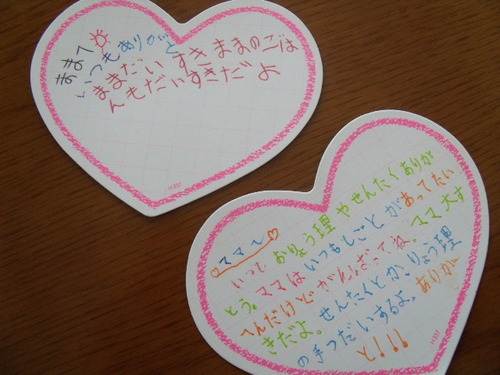 ままへ
いつもありがと
ままだいすき ままのごは
んもだいすきだよ
ママへ
いつも おりょう理やせんたくありが
とう。ママはいつもしごとがあってたい
へんだけどがんばってね。ママ大す
きだよ。せんたくとかりょう理
の手つだいするよ。ありが
と!!!